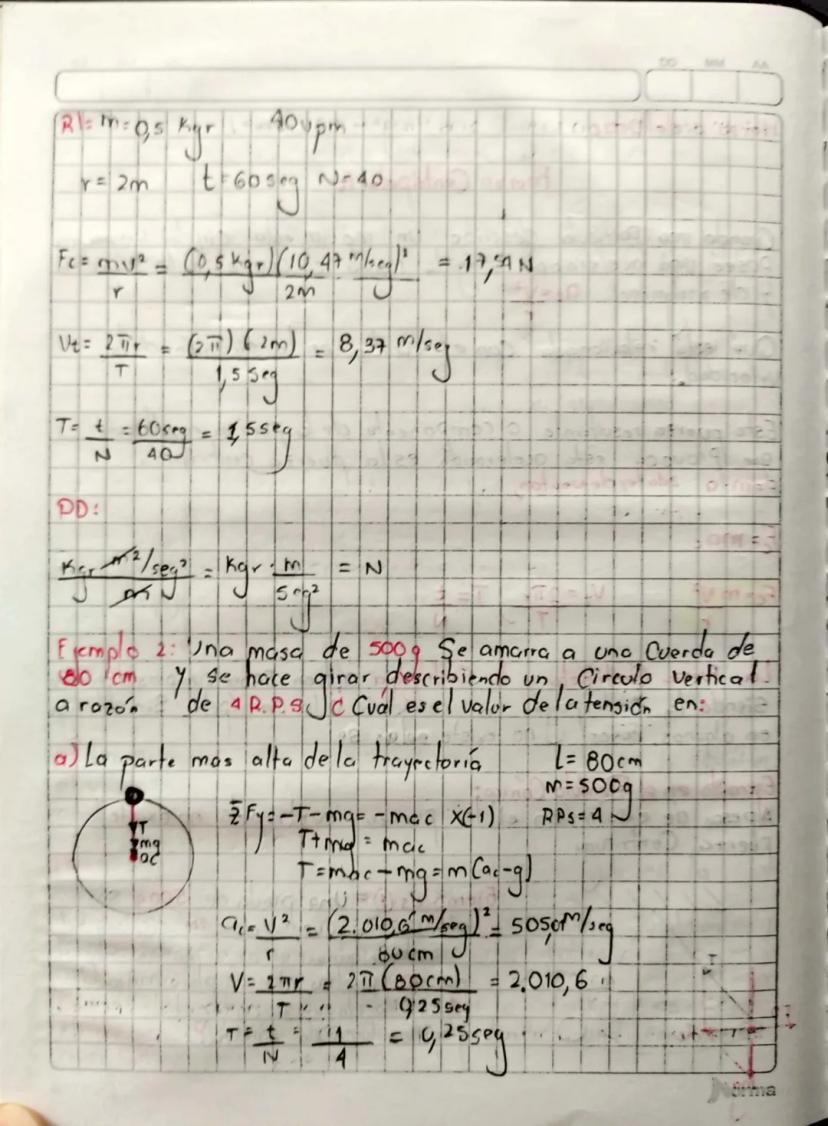 DD MM AA
R1= m=0,5 Kgr 40vpm
r= 2m t=60seg N=40
Fc= mv²/r = (0,5 Kgr)(10,47 m/seg)²/2m = 17,4N
Vt= 2πr/T = (2π)(2m)/1,5 seg = 8,37 m/seg
T= t/N = 60seg/40 = 1,5seg
DD:
Kgr m²/seg²/m = Kgr · m/seg² = N
Ejemplo 2: Una masa de 500g Se amarra a una Cuerda de
80 cm y se hace girar describiendo un Circulo vertical.
a razón de 4 R.P.S ¿Cuál es el valor de la tensión en:
a) La parte mas alta de la trayectoría L= 80cm
m= 500g
ΣFy=-T-mg= -mac x(-1) RPS= 4
T+mg = mac
T
mg
ac
T= mac - mg = m(ac-g)
ac= V²/r = (2.010,6 m/seg)²/80cm = 505,0m/seg
V= 2πr/T = 2π(80cm)/0,25seg = 2.010,6
T= t/N = 1/4 = 0,25seg
Norma